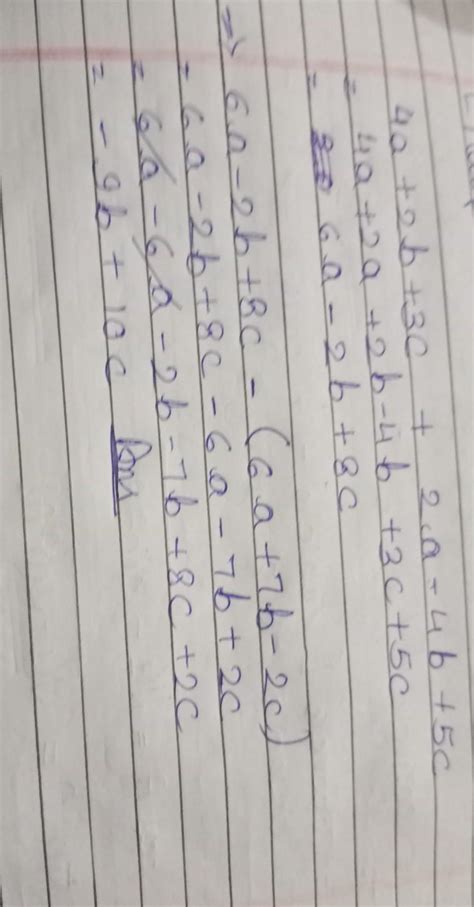 4a + 2b + 3c + 2a - 4b + 5c
= 4a + 2a + 2b - 4b + 3c + 5c
= 6a - 2b + 8c
⇒ 6a - 2b + 8c - (6a + 7b - 2c)
= 6a - 2b + 8c - 6a - 7b + 2c
= 6a - 6a - 2b - 7b + 8c + 2c
= - 9b + 10c Ans